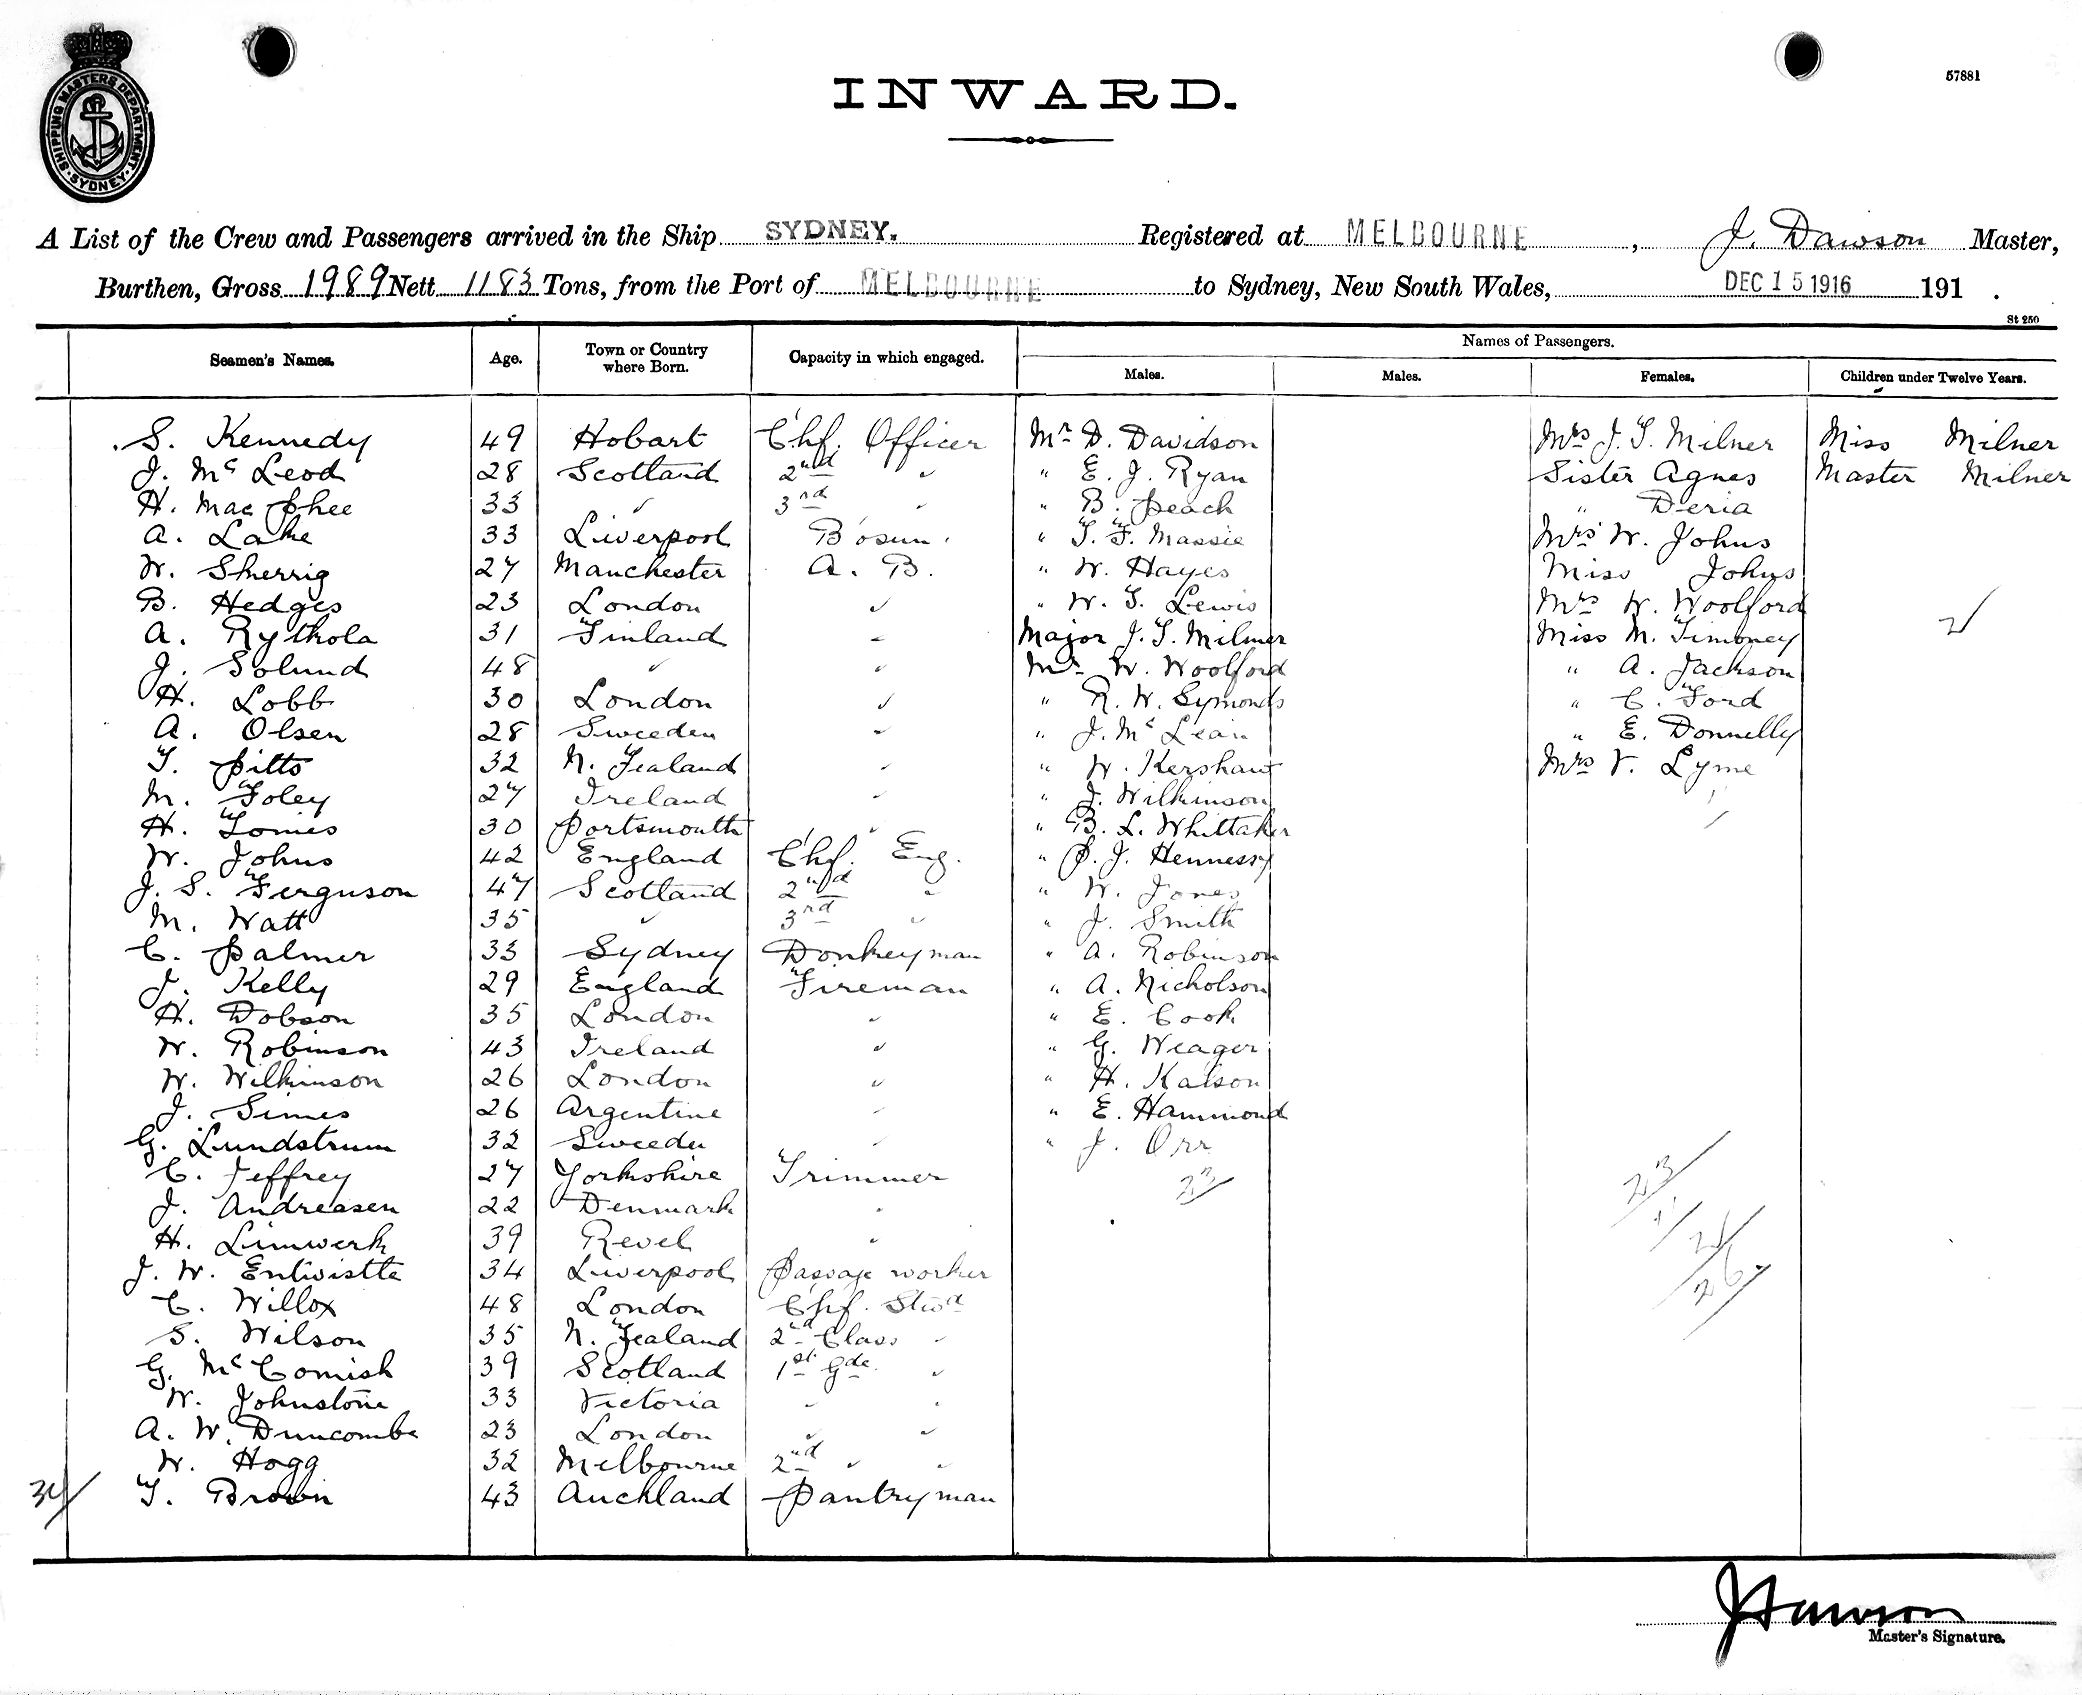 57881
SHIPPING MASTERS DEPARTMENT SYDNEY
INWARD.
A List of the Crew and Passengers arrived in the Ship SYDNEY. Registered at MELBOURNE, J. Dawson Master,
Burthen, Gross 1989 Nett 1183 Tons, from the Port of MELBOURNE to Sydney, New South Wales, DEC 15 1916 191 .
St 250
Seamen's Names. Age. Town or Country where Born. Capacity in which engaged. Names of Passengers.
Males. Males. Females. Children under Twelve Years.
S. Kennedy 49 Hobart Chf. Officer Mr D. Davidson Mrs J. T. Milner Miss Milner
J. McLeod 28 Scotland 2nd " " E. J. Ryan Sister Agnes Master Milner
H. MacPhee 33 " 3rd " " B. Peach " Deria
A. Lake 33 Liverpool Bosun. " T. F. Massie Mrs W. Johns
W. Sherrig 27 Manchester A. B. " W. Hayes Miss Johns
B. Hedges 23 London " " W. T. Lewis Mrs W. Woolford
A. Rythola 31 Finland " Major J. T. Milner Miss M. Timoney 2
J. Solund 48 " " Mr W. Woolford " A. Jackson
H. Lobb 30 London " " R. W. Symonds " C. Ford
A. Olsen 28 Sweeden " " J. McLean " E. Donnelly
T. Pitts 32 N. Zealand " " W. Kershaw Mrs V. Lyme
M. Foley 27 Ireland " " J. Wilkinson 11
H. Tomes 30 Portsmouth " " B. L. Whittaker
W. Johns 42 England Chf. Eng. " P. J. Hennessy
J. S. Ferguson 47 Scotland 2nd " " W. Jones
M. Watt 35 " 3rd " " J. Smith
C. Palmer 33 Sydney Donkeyman " A. Robinson
J. Kelly 29 England Fireman " A. Nicholson
H. Dobson 35 London " " E. Cook
W. Robinson 43 Ireland " " G. Weager
W. Wilkinson 26 London " " H. Katson
J. Simes 26 Argentine " " E. Hammond
G. Lundstrum 32 Sweeden " " J. Orr
C. Jeffrey 27 Yorkshire Trimmer 23 23
J. Andreasen 22 Denmark " 11
H. Limwerk 39 Revel " 2
J. W. Entwistle 34 Liverpool Passage worker 36
C. Willox 48 London Chf. Stwd
S. Wilson 35 N. Zealand 2nd Class "
G. McComish 39 Scotland 1st Gde. "
W. Johnstone 33 Victoria " "
A. W. Duncombe 23 London " "
W. Hogg 32 Melbourne 2nd " "
34 T. Brown 43 Auckland Pantryman
J Dawson
Master's Signature.